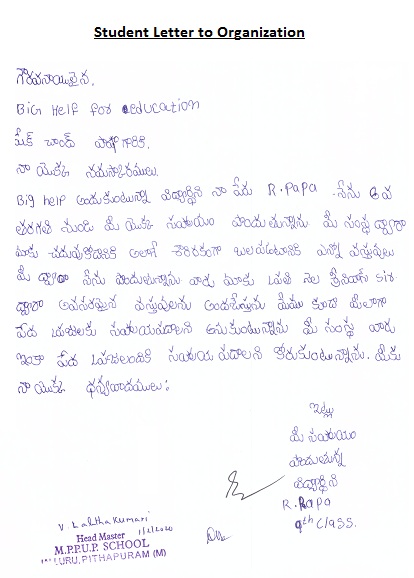 Student Letter to Organization
గౌరవనీయులైన,
Big Help for education
షేక్ చాంద్ పాషా గారికి,
నా యొక్క నమస్కారములు.
Big help అందుకుంటున్న విద్యార్థిని నా పేరు R.Papa. నేను 6 వ
తరగతి నుండి మీ యొక్క సహాయం పొందుతున్నాను. మీ సంస్థ ద్వారా
మాకు చదువుకోడానికి అలాగే శారీరకంగా బలపడటానికి ఎన్నో వస్తువులు
మీ ద్వారా నేను పొందుతున్నాను వారు మాకు ప్రతి నెల శ్రీనివాస్ sir
ద్వారా అవసరమైన వస్తువులను అందజేస్తున్న మేము కూడా మీలాగా
పేద ప్రజలకు సహాయపడాలని అనుకుంటున్నాను మీ సంస్థ వారు
ఇంకా పేద ప్రజలందరికి సహాయ పడాలని కోరుకుంటున్నాను. మీకు
నా యొక్క ధన్యవాదములు:
ఇట్లు
మీ సహాయం
పొందుతున్న
విద్యార్థిని
R. Papa
9th Class.
V Lalitha Kumari
1/2/2020
Head Master
M.P.P.U.P. SCHOOL
PITHAPURAM (M)